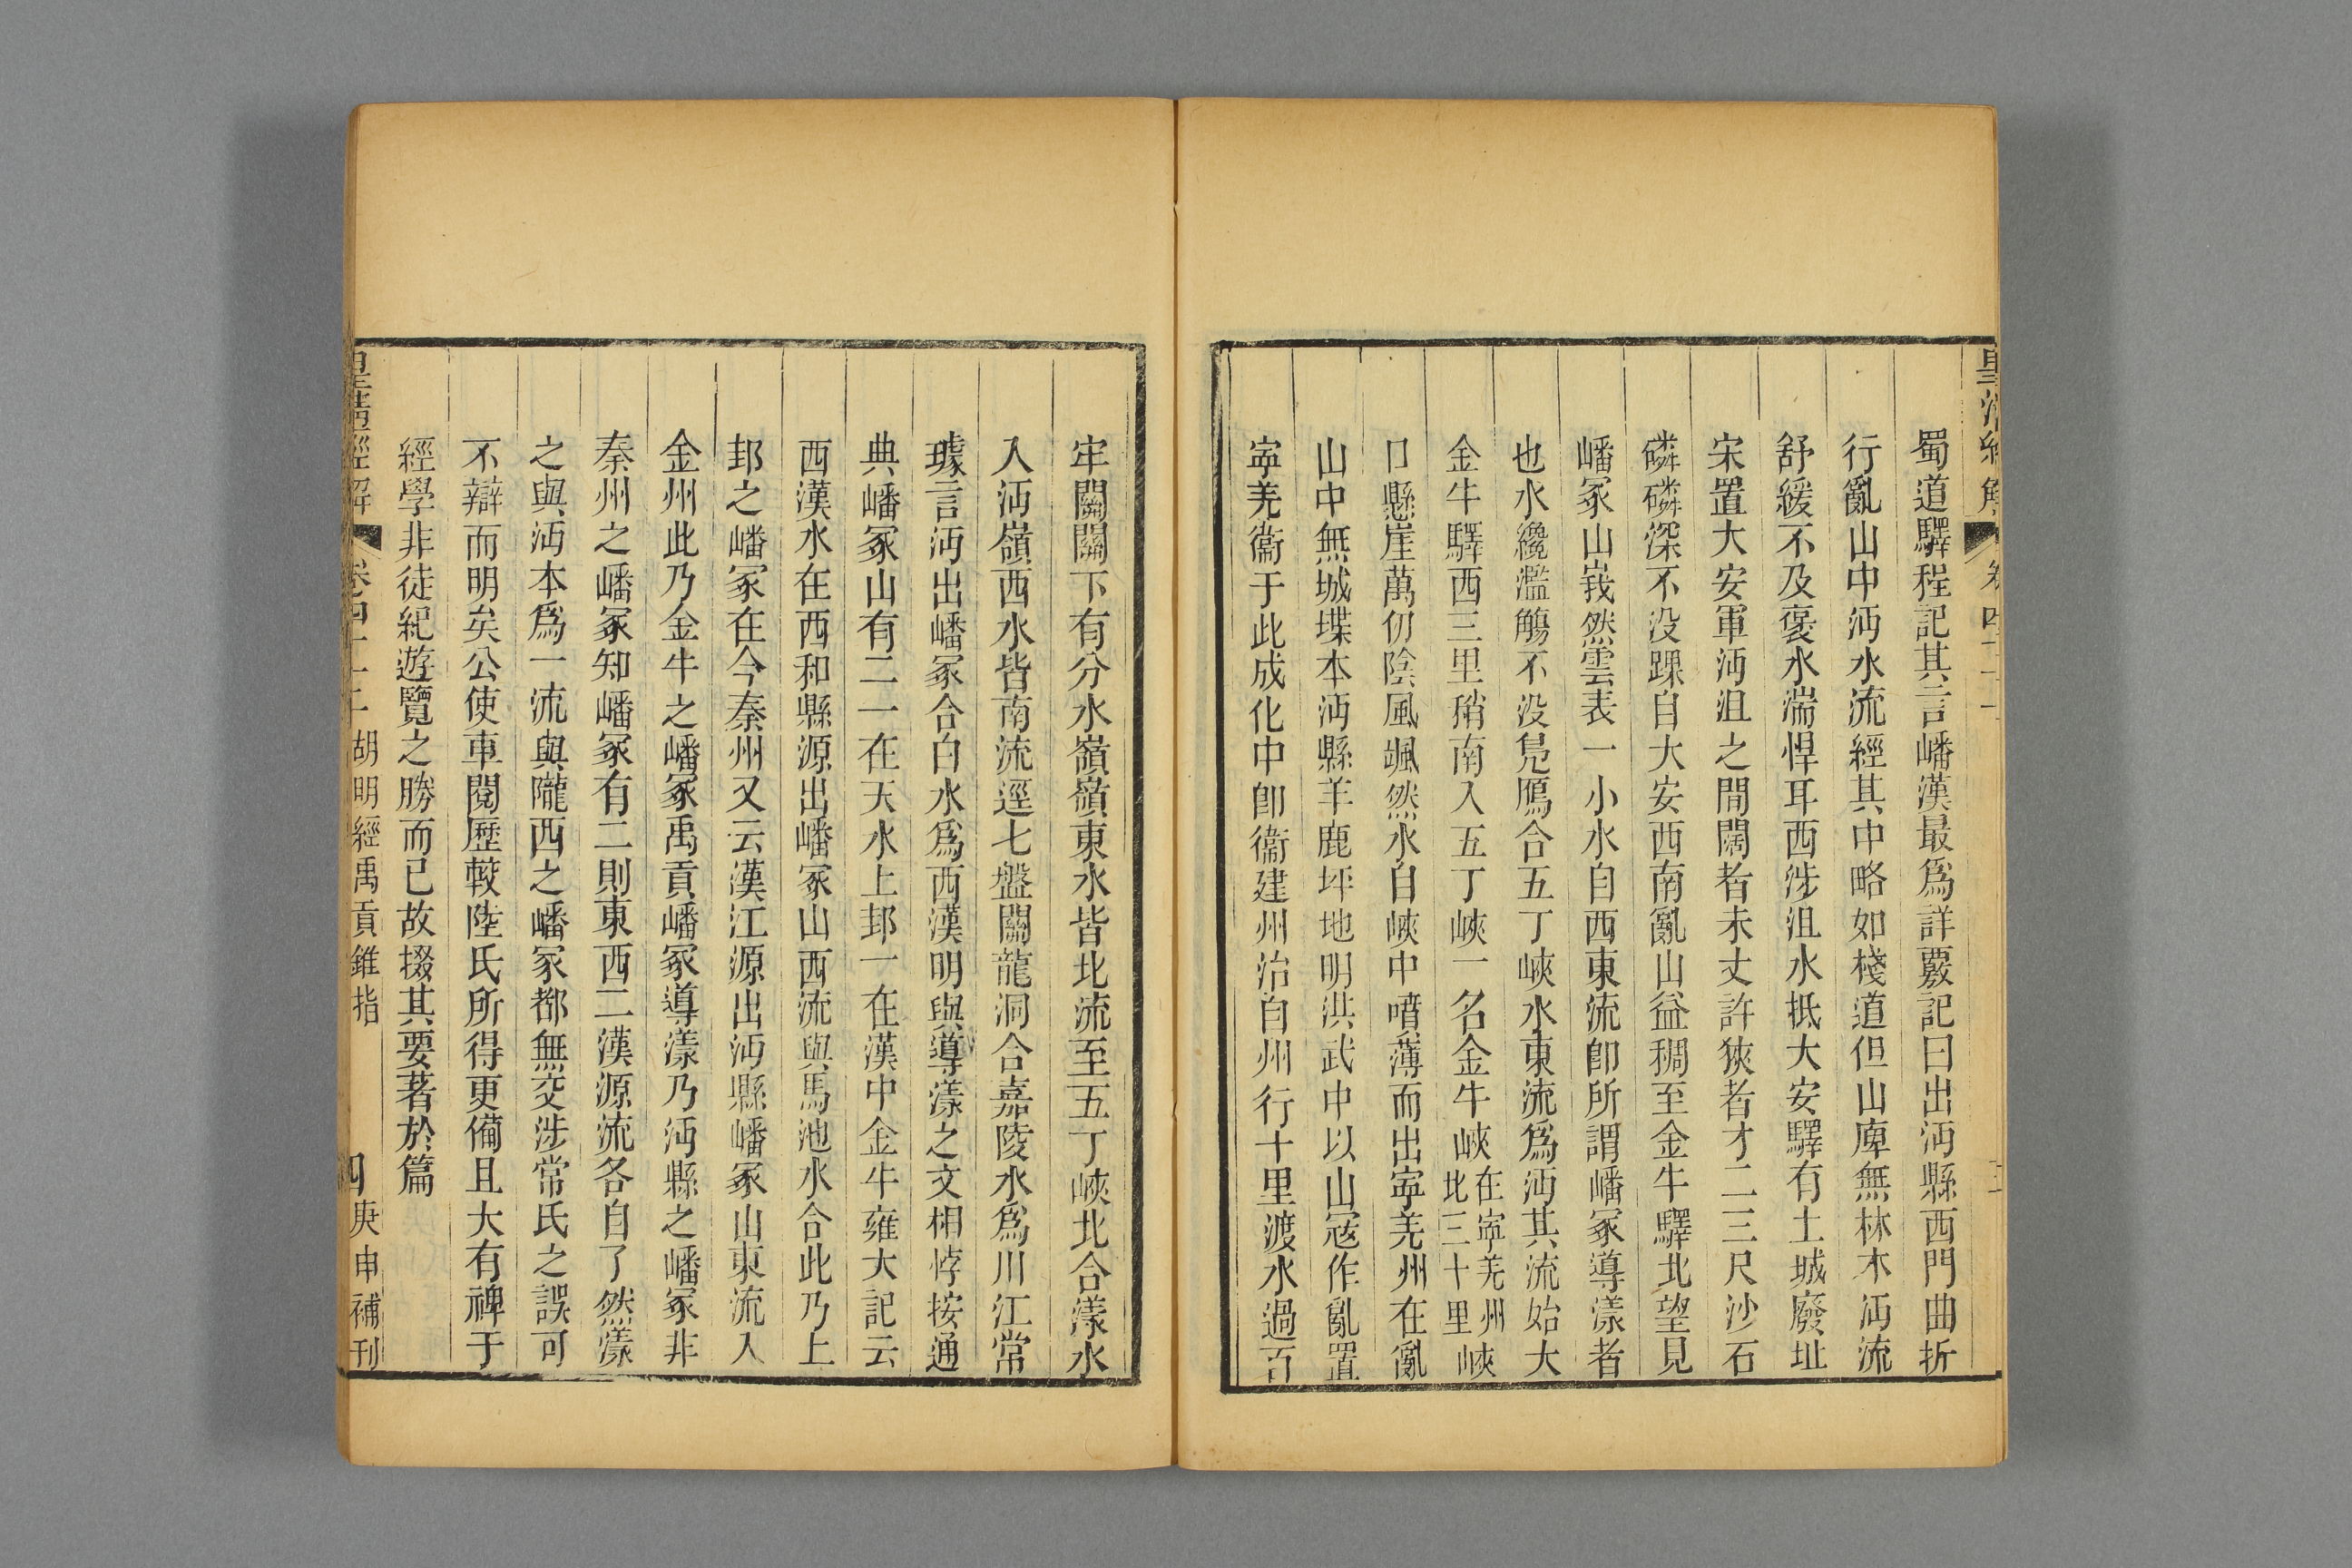 皇清經解
卷四十二
三
蜀道驛程記其言嶓漢最爲詳覈記曰出沔縣西門曲折
行亂山中沔水流經其中略如棧道但山庳無林木沔流
舒緩不及褒水湍悍耳西涉沮水抵大安驛有土城廢址
宋置大安軍沔沮之間闊者未丈許狹者才二三尺沙石
磷磷深不没踝自大安西南亂山益稠至金牛驛北望見
嶓冢山峩然雲表一小水自西東流卽所謂嶓冢導漾者
也水纔濫觴不没鳧鴈合五丁峽水東流爲沔其流始大
金牛驛西三里稍南入五丁峽一名金牛峽在寧羌州北三十里峽
口懸崖萬仞陰風颯然水自峽中噴薄而出寧羌州在亂
山中無城堞本沔縣羊鹿坪地明洪武中以山寇作亂置
寧羌衞于此成化中卽衞建州治自州行十里渡水過百
牢關關下有分水嶺嶺東水皆北流至五丁峽北合漾水
入沔嶺西水皆南流逕七盤關龍洞合嘉陵水爲川江常
璩言沔出嶓冢合白水爲西漢明與導漾之文相悖按通
典嶓冢山有二一在天水上邽一在漢中金牛雍大記云
西漢水在西和縣源出嶓冢山西流與馬池水合此乃上
邽之嶓冢在今秦州又云漢江源出沔縣嶓冢山東流入
金州此乃金牛之嶓冢禹貢嶓冢導漾乃沔縣之嶓冢非
秦州之嶓冢知嶓冢有二則東西二漢源流各自了然漾
之與沔本爲一流與隴西之嶓冢都無交涉常氏之誤可
不辯而明矣公使車閱歷較陸氏所得更備且大有裨于
經學非徒紀遊覽之勝而已故掇其要著於篇
皇淸經解
卷四十二
胡明經禹貢錐指
四
庚申補刊